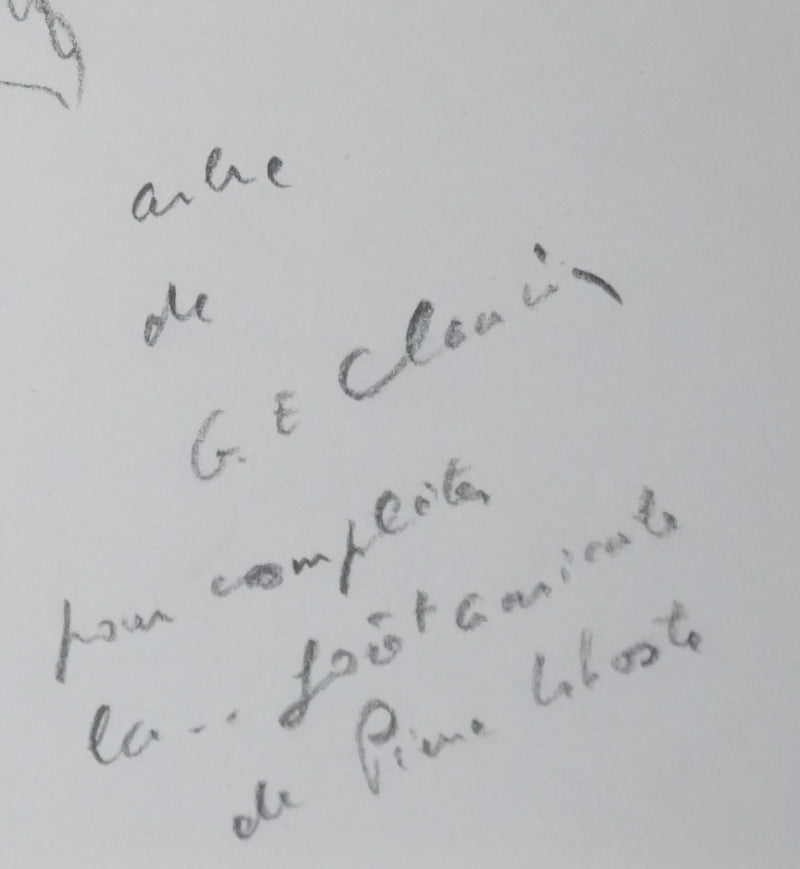 arbre
de
G. E Clancier
pour compléter
la.. forêt amicale
de Pierre